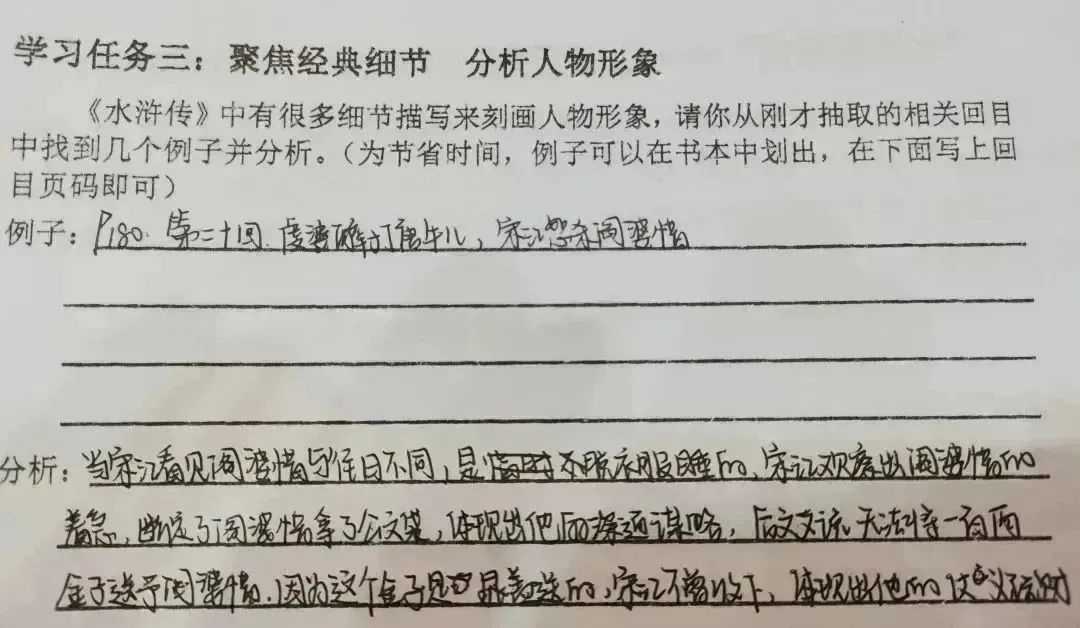 学习任务三：聚焦经典细节 分析人物形象
《水浒传》中有很多细节描写来刻画人物形象，请你从刚才抽取的相关回目
中找到几个例子并分析。（为节省时间，例子可以在书本中划出，在下面写上回
目页码即可）
例子：P180. 第二十回. 虔婆醉打唐牛儿，宋江怒杀阎婆惜
分析：当宋江看见阎婆惜与往日不同，是不脱衣服睡的，宋江观察出阎婆惜的
着急，断定了阎婆惜拿了公文袋，体现出他的深通谋略，后文又说无法将一百两
金子送予阎婆惜，因为这个金子是晁盖送的，宋江不曾收下，体现出他的仗义疏财